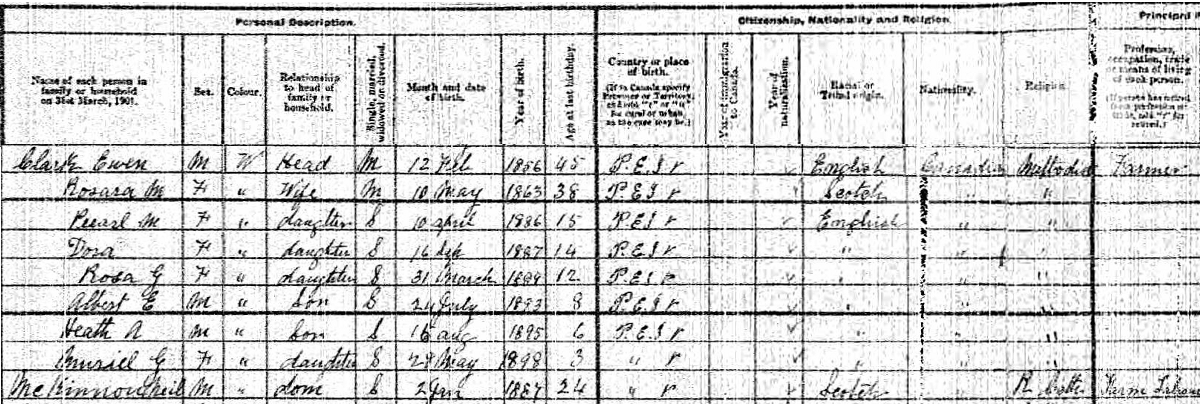 Personal Description. Citizenship, Nationality and Religion. Principal
Name of each person in family or household on 31st March, 1901. Sex. Colour. Relationship to head of family or household. Single, married, widowed or divorced. Month and date of birth. Year of birth. Age at last birthday. Country or place of birth. (If in Canada specify Province or Territory, and add "r" or "u" for rural or urban, as the case may be.) Year of immigration to Canada. Year of naturalization. Racial or Tribal origin. Nationality. Religion. Profession, occupation, trade or means of living of each person.
Clark Ewen M W Head M 12 Feb 1856 45 P.E.I r English Canadian Methodist Farmer
Rosara M F " Wife M 10 May 1863 38 P.E.I r Scotch " "
Pearl M F " daughter S 10 april 1886 15 P.E.I r English " "
Dora F " daughter S 16 Sep 1887 14 P.E.I r " " "
Rosa G F " daughter S 31 March 1889 12 P.E.I r " " "
Albert E M " Son S July 1893 8 P.E.I r " " "
Heath A M " Son S 16 aug 1895 6 P.E.I r " " "
Muriel G F " daughter S May 1898 3 " r " " "
McKinnon Neil M " dom S 2 Jan 24 " r Scotch " R Farm